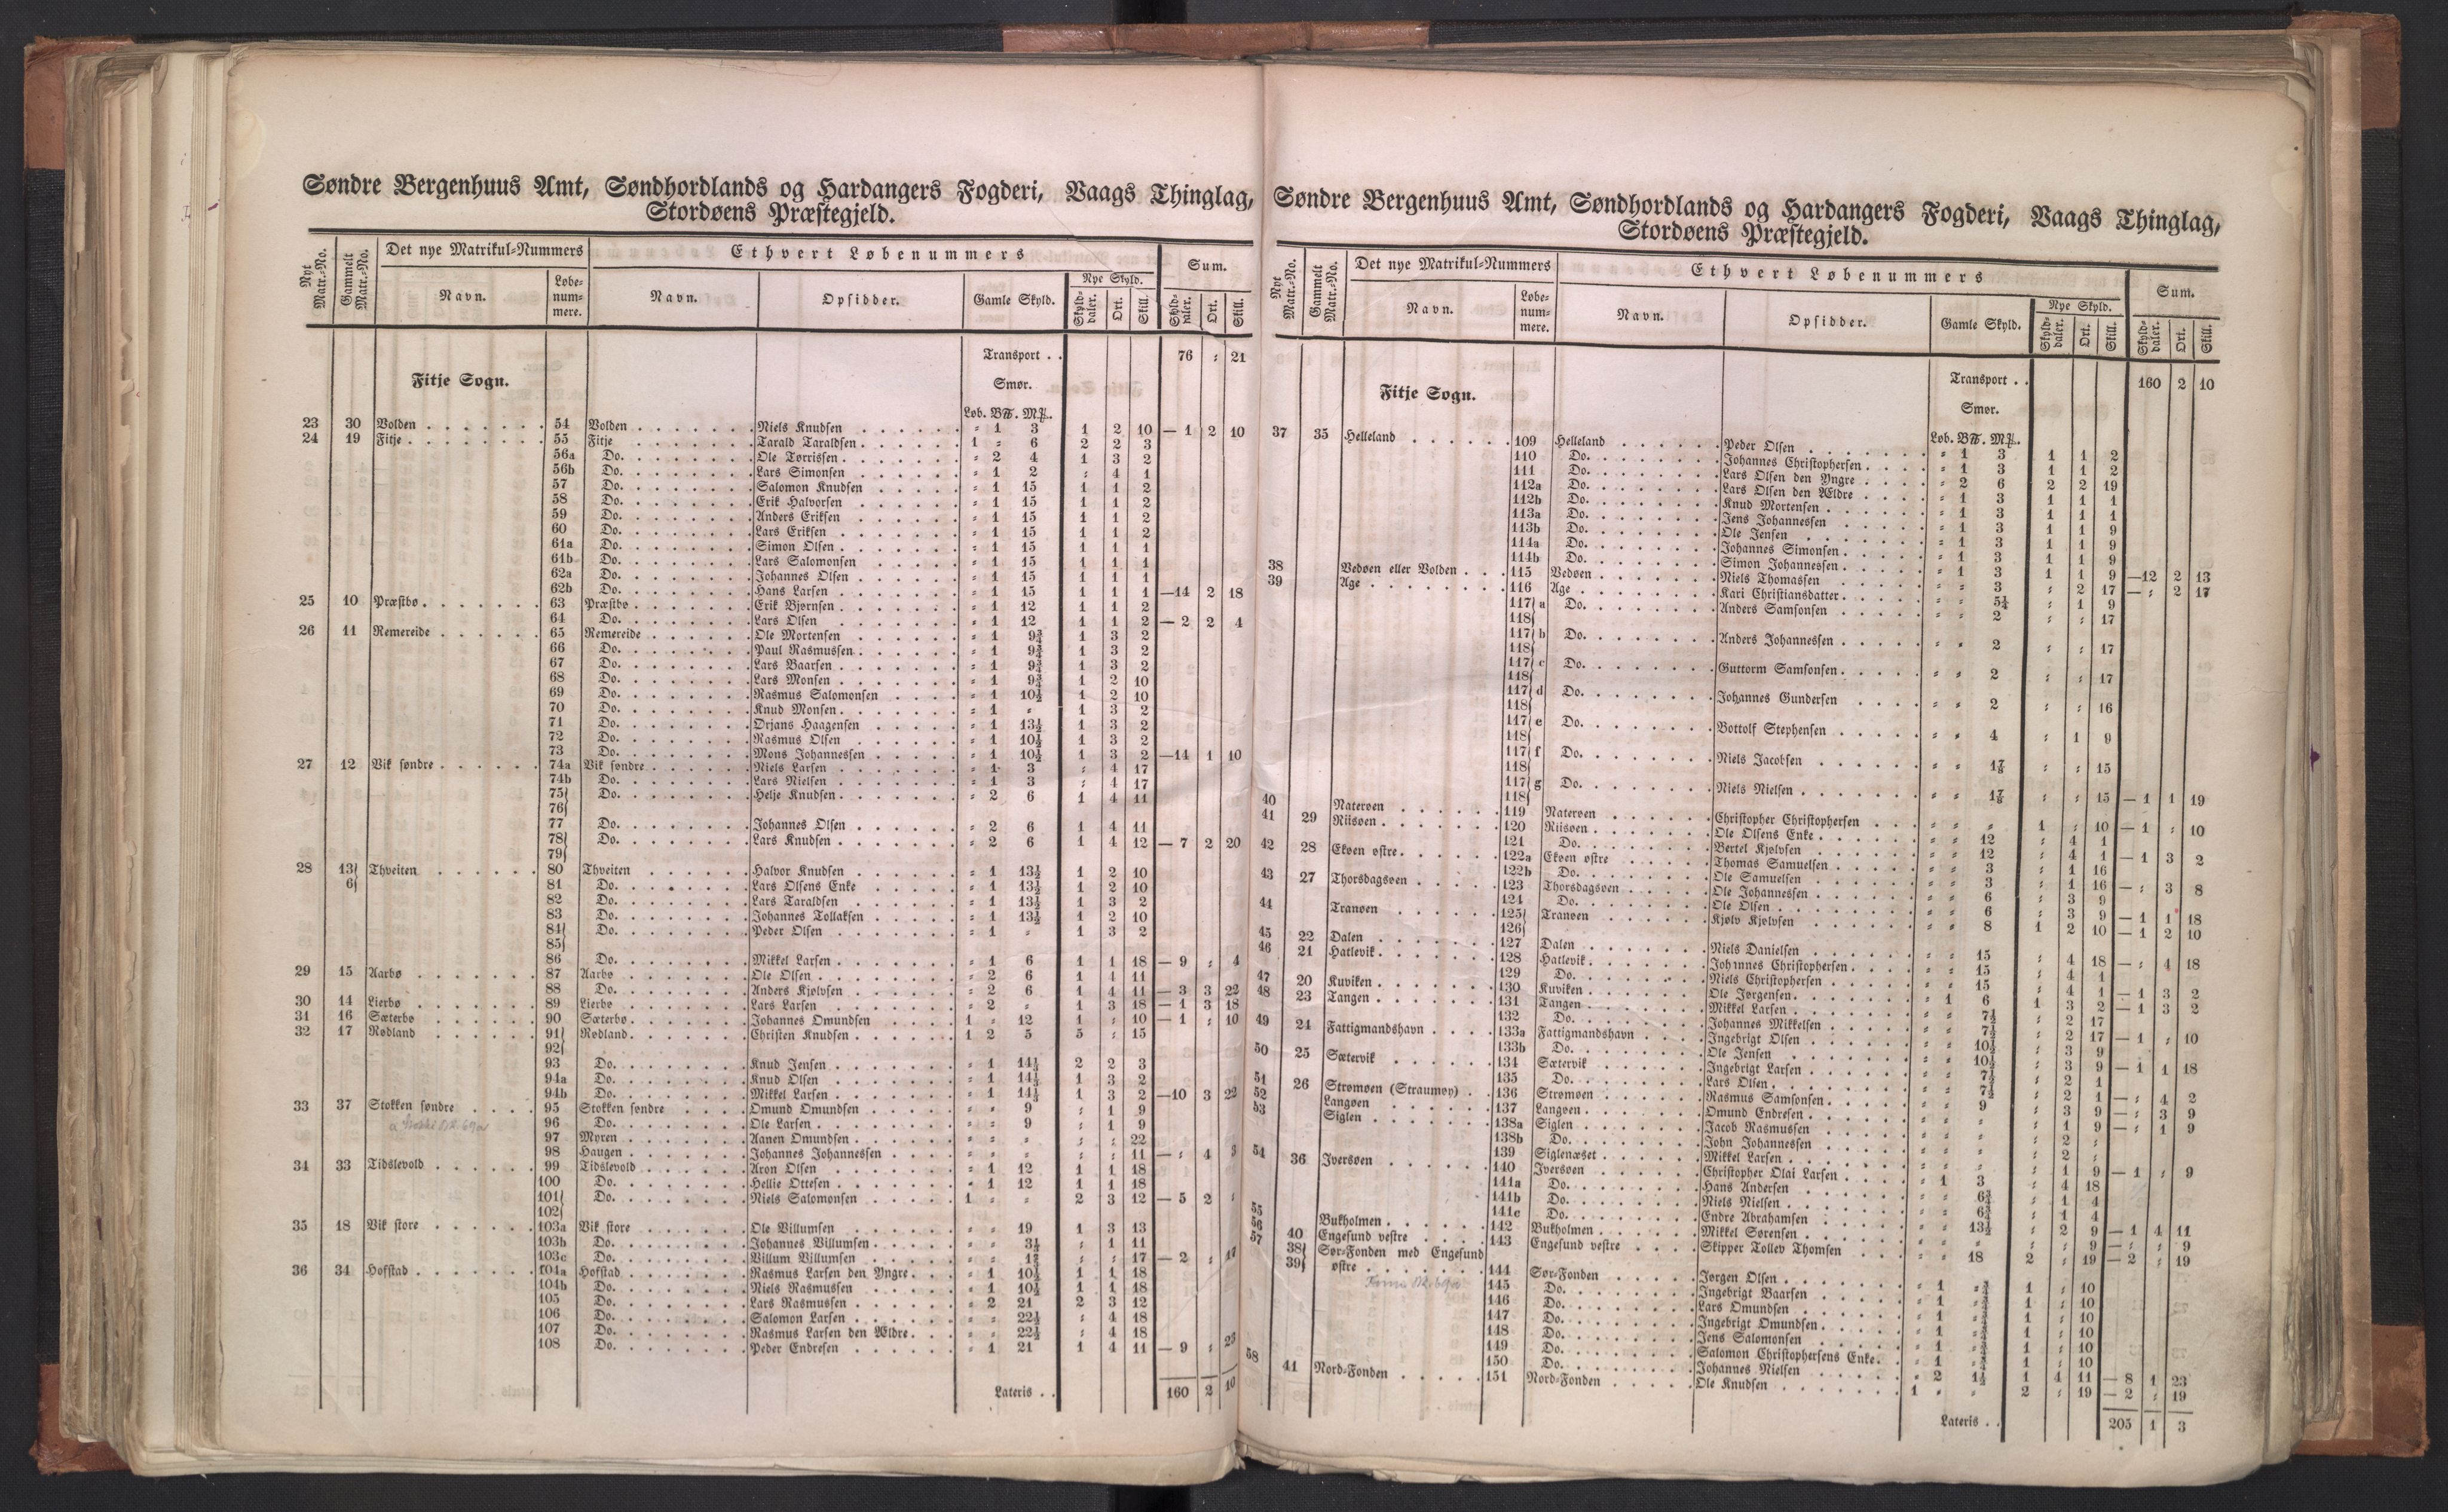 Søndre Bergenhuus Amt, Søndhordlands og Hardangers Fogderi, Vaags Thinglag,
Stordøens Præstegjeld.
Nyt Matr.-No. Gammelt Matr.-No. Det nye Matrikul-Nummers Ethvert Løbenummers Sum.
Navn. Løbe-num-mere. Navn. Opsidder. Gamle Skyld. Nye Skyld. Skyld-daler. Ort. Skill. Skyld-daler. Ort. Skill.
Transport . . 76 : 21
Fitje Sogn. Smør.
Løb. B℔. M℔.
23 30 Volden 54 Volden Niels Knudsen = 1 3 1 2 10 — 1 2 10
24 19 Fitje 55 Fitje Tarald Taraldsen 1 = 6 2 2 3
56a Do. Ole Tørrissen = 2 4 1 3 2
56b Do. Lars Simonsen = 1 2 : 4 1
57 Do. Salomon Knudsen = 1 15 1 1 2
58 Do. Erik Halvorsen = 1 15 1 1 2
59 Do. Anders Eriksen = 1 15 1 1 2
60 Do. Lars Eriksen = 1 15 1 1 2
61a Do. Simon Olsen = 1 15 1 1 1
61b Do. Lars Salomonsen = 1 15 1 1 1
62a Do. Johannes Olsen = 1 15 1 1 1
62b Do. Hans Larsen = 1 15 1 1 1 —14 2 18
25 10 Præstbø 63 Præstbø Erik Bjørnsen = 1 12 1 1 2
64 Do. Lars Olsen = 1 12 1 1 2 — 2 2 4
26 11 Remereide 65 Remereide Ole Mortensen = 1 9¾ 1 3 2
66 Do. Paul Rasmussen = 1 9¾ 1 3 2
67 Do. Lars Baarsen = 1 9¾ 1 3 2
68 Do. Lars Monsen = 1 9¾ 1 2 10
69 Do. Rasmus Salomonsen = 1 10½ 1 2 10
70 Do. Knud Monsen = 1 = 1 3 2
71 Do. Ørjans Haagensen = 1 13½ 1 3 2
72 Do. Rasmus Olsen = 1 10½ 1 3 2
73 Do. Mons Johannessen = 1 10½ 1 3 2 —14 1 10
27 12 Vik søndre 74a Vik søndre Niels Larsen = 1 3 : 4 17
74b Do. Lars Nielsen = 1 3 : 4 17
75 Do. Helje Knudsen = 2 6 1 4 11
76
77 Do. Johannes Olsen = 2 6 1 4 11
78 Do. Lars Knudsen = 2 6 1 4 12 — 7 2 20
79
28 13 Thveiten 80 Thveiten Halvor Knudsen = 1 13½ 1 2 10
6 81 Do. Lars Olsens Enke = 1 13½ 1 2 10
82 Do. Lars Taraldsen = 1 13½ 1 3 2
83 Do. Johannes Tollaksen = 1 13½ 1 2 10
84 Do. Peder Olsen = 1 = 1 3 2
85
86 Do. Mikkel Larsen = 1 6 1 1 18 — 9 : 4
29 15 Aarbø 87 Aarbø Ole Olsen = 2 6 1 4 11
88 Do. Anders Kjølvsen = 2 6 1 4 11 — 3 3 22
30 14 Lierbø 89 Lierbø Lars Larsen = 2 = 1 3 18 — 1 3 18
31 16 Sæterbø 90 Sæterbø Johannes Omundsen 1 = 12 1 : 10 — 1 : 10
32 17 Rødland 91 Rødland Christen Knudsen 1 2 5 5 : 15
92
93 Do. Knud Jensen = 1 14½ 2 2 3
94a Do. Knud Olsen = 1 14½ 1 3 2
94b Do. Mikkel Larsen = 1 14½ 1 3 2 —10 3 22
33 37 Stokken søndre 95 Stokken søndre Omund Omundsen = = 9 : 1 9
96 Do. Ole Larsen = = 9 : 1 9
97 Myren Aanen Omundsen = = = : : 22
98 Haugen Johannes Johannessen = = = : : 11 — : 4 3
34 33 Tidslevold 99 Tidslevold Aron Olsen = 1 12 1 1 18
100 Do. Hellie Ottesen = 1 12 1 1 18
101 Do. Niels Salomonsen 1 = = 2 3 12 — 5 2 :
102
35 18 Vik store 103a Vik store Ole Villumsen = = 19 1 3 13
103b Do. Johannes Villumsen = = 3½ : 1 11
103c Do. Villum Villumsen = = : : 17 — 2 : 17
36 34 Hofstad 104a Hofstad Rasmus Larsen den Yngre = 1 10½ 1 1 18
104b Do. Niels Rasmussen = 1 10½ 1 1 18
105 Do. Lars Rasmussen = 2 21 2 3 12
106 Do. Salomon Larsen = = 22½ : 4 18
107 Do. Rasmus Larsen den Ældre = = 22½ : 4 18
108 Do. Peder Endresen = 1 21 1 4 11 — 9 : 23
Lateris . . 160 2 10
Søndre Bergenhuus Amt, Søndhordlands og Hardangers Fogderi, Vaags Thinglag,
Stordøens Præstegjeld.
Nyt Matr.-No. Gammelt Matr.-No. Det nye Matrikul-Nummers Ethvert Løbenummers Sum.
Navn. Løbe-num-mere. Navn. Opsidder. Gamle Skyld. Nye Skyld. Skyld-daler. Ort. Skill. Skyld-daler. Ort. Skill.
Transport . . 160 2 10
Fitje Sogn. Smør.
Løb. B℔. M℔.
37 35 Helleland 109 Helleland Peder Olsen = 1 3 1 1 2
110 Do. Johannes Christophersen = 1 3 1 1 2
111 Do. Lars Olsen den Yngre = 2 6 2 2 19
112a Do. Lars Olsen den Ældre = 1 3 1 1 1
112b Do. Knud Mortensen = 1 3 1 1 1
113a Do. Jens Johannessen = 1 3 1 1 9
113b Do. Ole Jensen = 1 3 1 1 9
114a Do. Johannes Simonsen = 1 3 1 1 9
114b Do. Simon Johannessen = 1 3 1 1 9 —12 2 13
38 Vedøen eller Volden 115 Vedøen Niels Thomassen = = 3 : 2 17 — : 2 17
39 Age 116 Age Kari Christiansdatter = = 5¼ : 1 9
117 a Do. Anders Samsonsen = = 2 : : 17
118
117 b Do. Anders Johannessen = = 2 : : 17
118
117 c Do. Guttorm Samsonsen = = 2 : : 17
118
117 d Do. Johannes Gundersen = = 2 : : 16
118
117 e Do. Bottolf Stephensen = = 4 : 1 9
118
117 f Do. Niels Jacobsen = = 1⅞ : : 15
118
117 g Do. Niels Nielsen = = 1⅞ : : 15 — 1 1 19
118
40 Naterøen 119 Naterøen Christopher Christophersen = = = 1 : 10 — 1 : 10
41 29 Riisøen 120 Riisøen Ole Olsens Enke = = 12 : 4 1
121 Do. Bertel Kjølvsen = = 12 : 4 1 — 1 3 2
42 28 Ekøen østre 122a Ekøen østre Thomas Samuelsen = = 3 : 1 16
122b Do. Ole Samuelsen = = 3 : 1 16 — : 3 8
43 27 Thorsdagsøen 123 Thorsdagsøen Ole Johannessen = = 6 : 3 9
124 Do. Ole Olsen = = 6 : 3 9 — 1 1 18
44 Tranøen 125 Tranøen Kjølv Kjølvsen = = 8 1 2 10 — 1 2 10
126
45 22 Dalen 127 Dalen Niels Danielsen = = 15 : 4 18 — : 4 18
46 21 Hatlevik 128 Hatlevik Johannes Christophersen = = 15 : 4 1
129 Do. Niels Christophersen = = 15 : 4 1 — 1 3 2
47 20 Kuviken 130 Kuviken Ole Jørgensen = 1 6 1 3 2 — 1 3 2
48 23 Tangen 131 Tangen Mikkel Larsen = = 7½ : 2 17
132 Do. Johannes Mikkelsen = = 7½ : 2 17 — 1 : 10
49 24 Fattigmandshavn 133a Fattigmandshavn Ingebrigt Olsen = = 10½ : 3 9
133b Do. Ole Jensen = = 10½ : 3 9 — 1 1 18
50 25 Sætervik 134 Sætervik Ingebrigt Larsen = = 7½ : 2 1
135 Do. Lars Olsen = = 7½ : 2 1 — : 4 2
51 26 Strømøen (Straumøy) 136 Strømøen Rasmus Samsonsen = = 9 : 3 9 — : 3 9
52 Langøen 137 Langøen Omund Endresen = = = : 1 9 — : 1 9
53 Siglen 138a Siglen Jacob Rasmussen = = = : 2 :
138b Do. John Johannessen = = = : 2 :
139 Siglenæset Mikkel Larsen = = = : 1 9 — 1 : 9
54 36 Iversøen 140 Iversøen Christopher Olai Larsen = 1 3 : 4 18
141a Do. Hans Andersen = = 6¾ : 1 4
141b Do. Niels Nielsen = = 6¾ : 1 4
141c Do. Endre Abrahamsen = = 13½ : 2 9 — 1 4 11
55 Bukholmen 142 Bukholmen Mikkel Sørensen = = = : : 9 — : : 9
56 40 Engesund vestre 143 Engesund vestre Skipper Tollev Thomsen = = 18 2 : 19 — 2 : 19
57 38 Sør-Fonden med Engesund
39 østre 144 Sør-Fonden Jørgen Olsen = 1 1 : 10
145 Do. Ingebrigt Baarsen = 1 1 : 10
146 Do. Lars Omundsen = 1 1 : 10
147 Do. Ingebrigt Omundsen = 1 1 : 10
148 Do. Jens Salomonsen = 1 1 : 10
149 Do. Salomon Christophersens Enke = 1 1 : 10
150 Do. Johannes Nielsen = 2 1½ 1 4 11 — 8 1 23
58 41 Nord-Fonden 151 Nord-Fonden Ole Knudsen 1 = = 2 : 19 — 2 : 19
Lateris . . 205 1 3